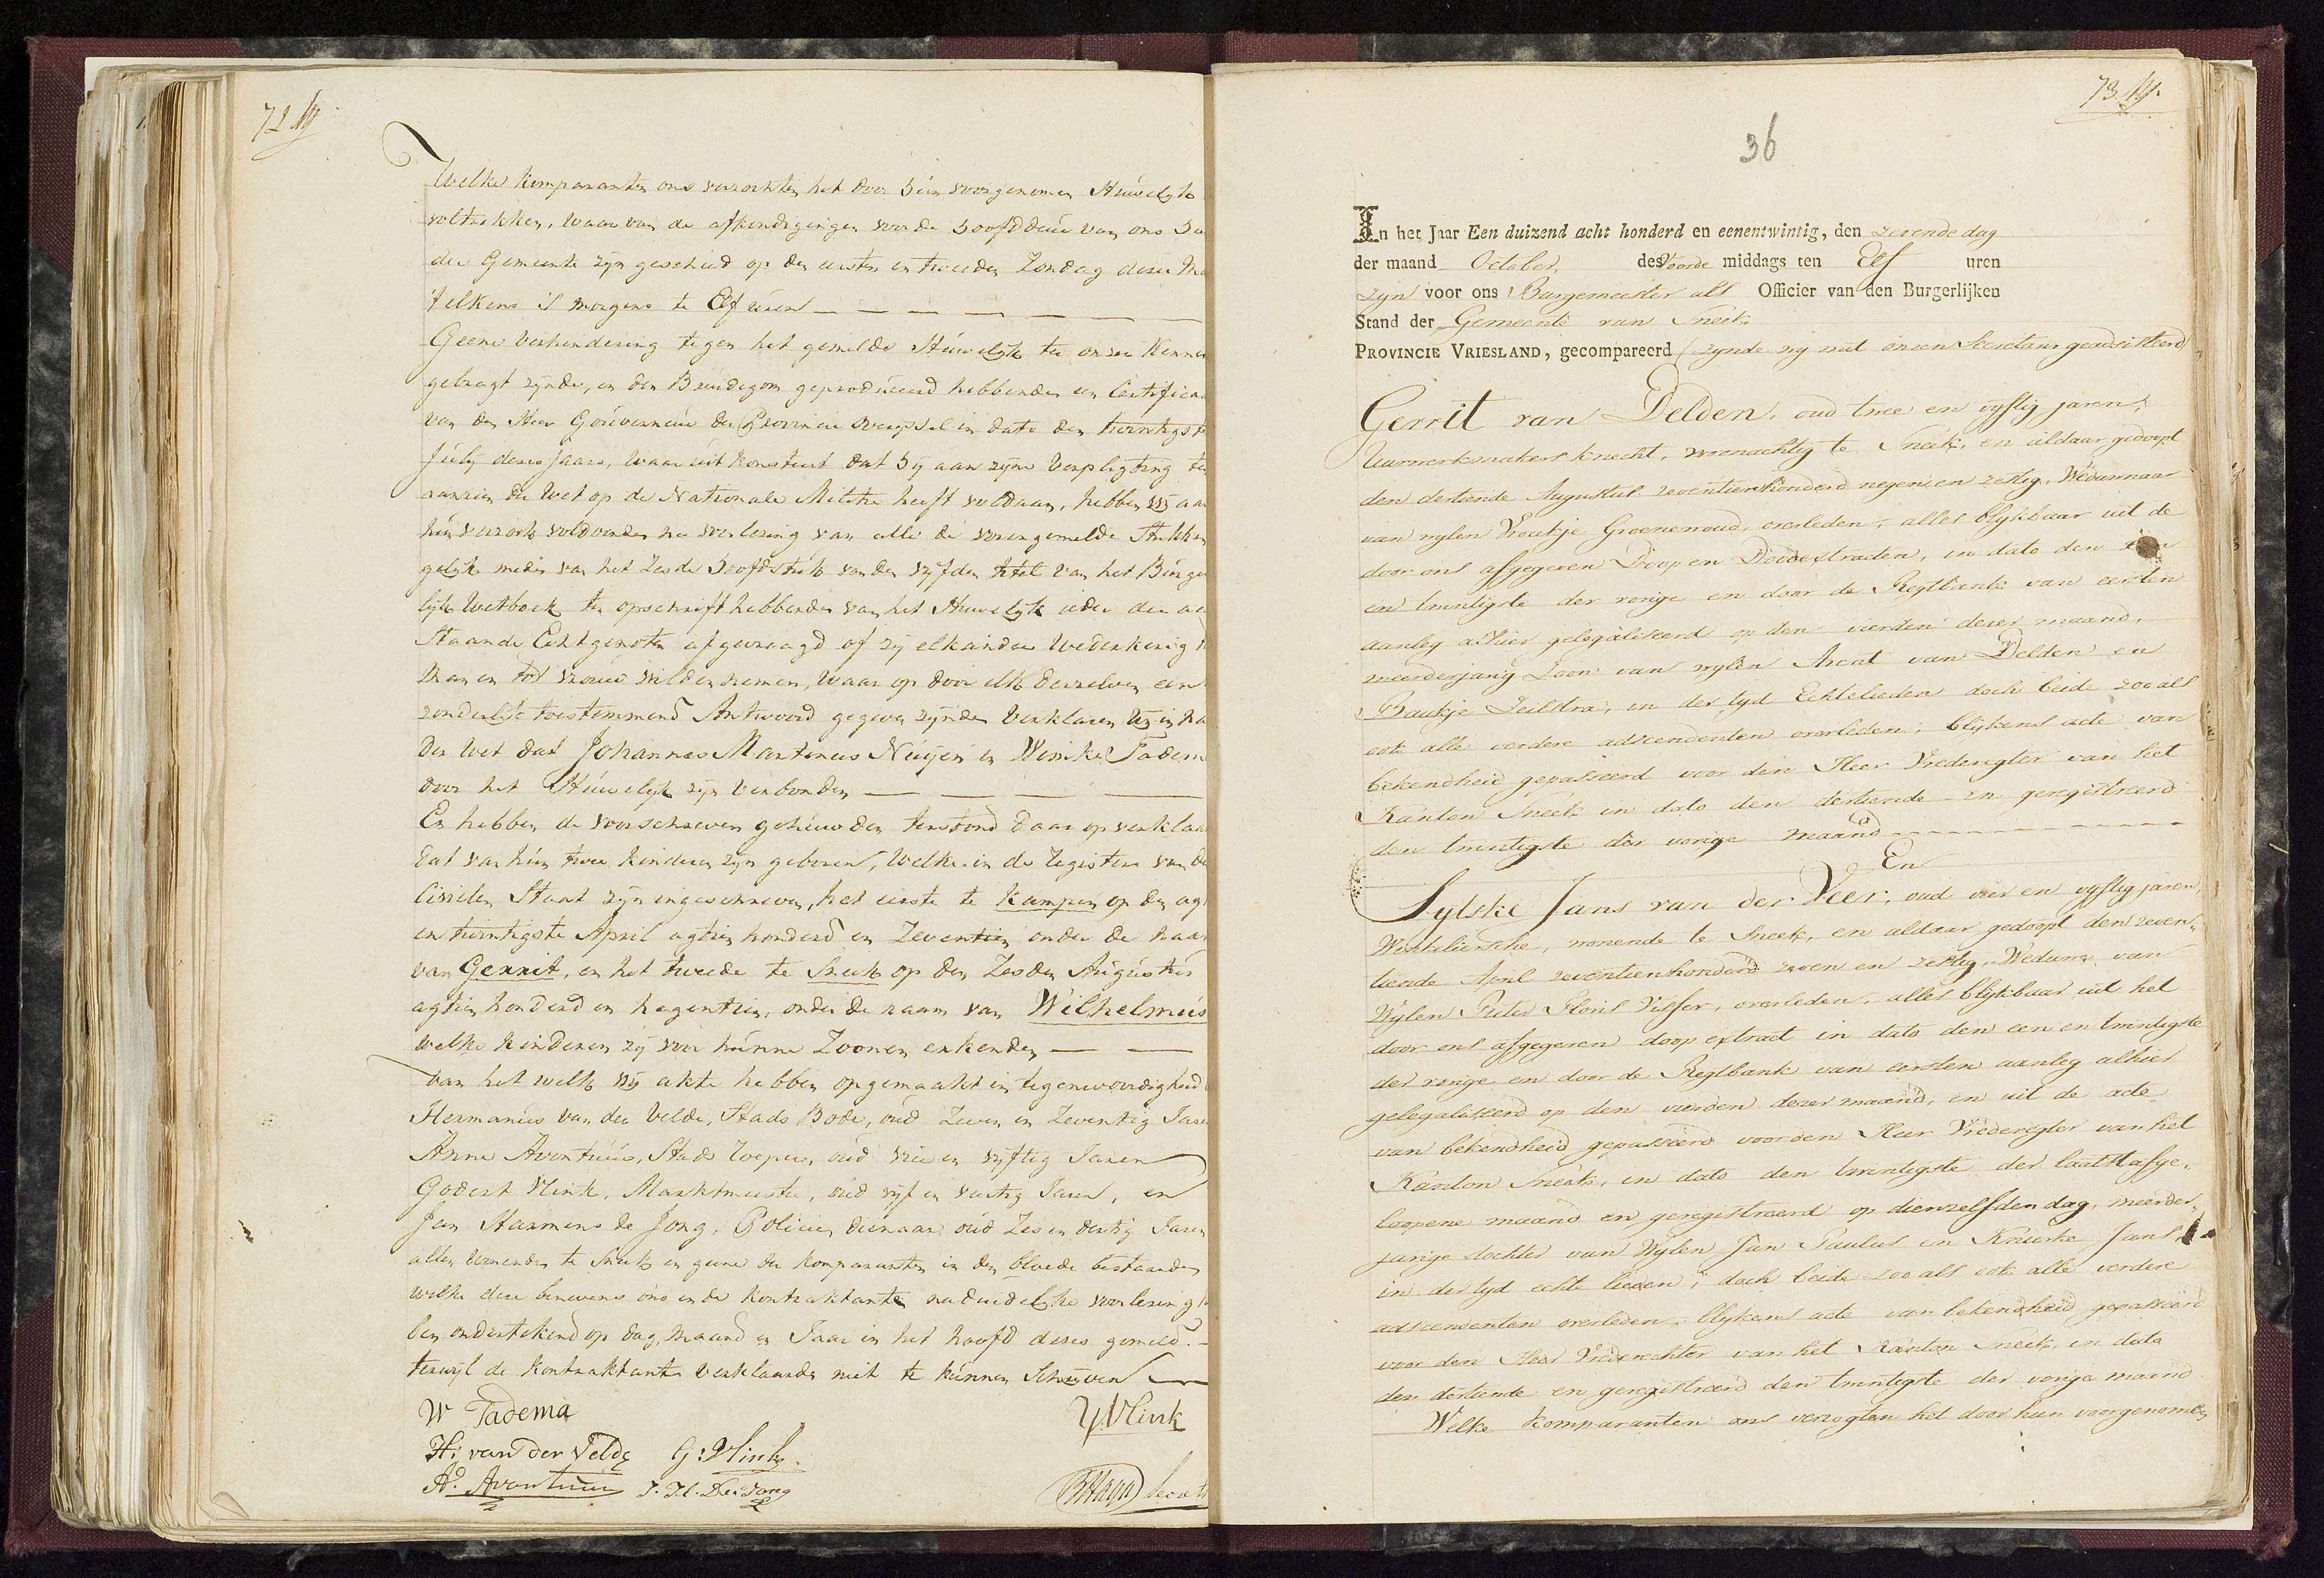 72
Welke komparanten ons verzochten het door hún voorgenomen Húwelijk
voltrekken, waar van de afkondigingen voor de hoofddeúr van ons
der Gemeente zijn geschied op den eersten en tweeden Zondag dezer
telkens 's morgens te Elf úren
Geene verhindering tegen het gemelde Húwelijk ter onzer Kennis
gebragt zijnde, en den Brúidegom geprodúceerd hebbende een Certificaa
van den Heer Goúverneúr der Provincie Overijssel in dato den twintigste
Júlij dezes Jaars, waar úit konsteert dat hij aan zijne verpligting ten
aanzien der Wet op de Nationale Militie heeft voldaan, hebben wij aan
hún verzoek voldoende na voorlezing van alle de vorengemelde Stúkken
gelijk mede van het Zesde hoofdstúk van den vijfden titel van het Búrger
lijk Wetboek ten opschrift hebbende van het Húwelijk ieder der aan
staande Echtgenoten afgevraagd of zij elkander wederkerig
Man en tot vroúw wilden nemen, waar op door elk derzelven een
zonderlijk toestemmend Antwoord gegeven zijnde verklaren wij in
der wet dat Johannes Martinus Nuijen en Wimke Tadema
door het Húwelijk zijn verbonden
En hebben de voorschreven gehúwden terstond daar op verklaa
dat van hún twee kinderen zijn geboren, welke in de registers van de
Civielen Staat zijn ingeschreven, het eerste te Kampen op den agt
en twintigste April agtien honderd en Zeventien onder de naam
van Gerrit, en het tweede te Sneek op den Zesden Aúgústús
agtien honderd en negentien, onder de naam van Wilhelmús
welke kinderen zij voor húnne Zoonen erkenden
Van het welk wij akte hebben opgemaakt in tegenwoordigheid
Hermanús van der Velde, Stads Bode, oúd Zeven en Zeventig Jaren
Anne Avontúúr, Stads roeper, oúd vier en vijftig Jaren
Godert Vlink, Marktmeester, oúd vijf en veertig Jaren, en
Jan Harmens de Jong, Policie dienaar oúd Zes en dertig Jaren
allen wonende te Sneek en geene der komparanten in den bloede bestaande
welke deze benevens ons en de kontraktante na dúidelijke voorlezing
ben ondertekend op dag, maand en Jaar in het hoofd dezes gemeld.
terwijl de kontraktant verklaarde niet te kúnnen Schrijven
W Tadema
Y. Vlink
H: van der Velde G: Vlink
A. Avontuur J. H. De Jong
73
36
In het Jaar Een duizend acht honderd en eenentwintig, den zevende dag
der maand October, des Voorde middags ten Elf uren
zijn voor ons Burgemeester als Officier van den Burgerlijken
Stand der Gemeente van Sneek
PROVINCIE VRIESLAND, gecompareerd (zijnde wij met onsen Secretaris geadsisteerd)
Gerrit van Delden, oud twee en vijftig jaren,
Uurwerkmakers knecht, woonachtig te Sneek, en aldaar gedoopt
den dertiende Augustus zeventienhonderd negen en zestig, Weduwnaar
van wijlen Froukje Groenewoud, overleden, alles blijkbaar uit de
door ons afgegeven Doop en Doodextracten, in dato den
en twintigste der vorige en door de Regtbank van eersten
aanleg alhier gelegaliseerd op den vierden dezer maand,
meerderjarig Zoon van wijlen Arent van Delden en
Baukje Feilstra, in der tijd Echtelieden doch beide zoo als
ook alle verdere adscendenten overleden, blijkens acte van
bekendheid gepasseerd voor den Heer Vrederegter van het
Kanton Sneek in dato den dertiende en geregistreerd
den twintigste der vorige maand
En
Sytske Jans van der Veer, oud vier en vijftig jaren,
Winkeliersche, wonende te Sneek, en aldaar gedoopt den zeven-
tiende April zeventienhonderd zeven en zestig, Weduwe van
Wijlen Pieter Floris Visser, overleden, alles blijkbaar uit het
door ons afgegeven doop extract in dato den een en twintigste
der vorige en door de Regtbank van eersten aanleg alhier
gelegaliseerd op den vierden dezer maand, en uit de acte
van bekendheid gepasseerd voor den Heer Vrederegter van het
Kanton Sneek, in dato den twintigste der laatst afge-
loopene maand en geregistreerd op dienzelfden dag, meerder-
jarige dochter van Wijlen Jan Paulus en Knierske Jans,
in der tijd echte lieden, doch beide zoo als ook alle verdere
adscendenten overleden, blijkens acte van bekendheid gepasseerd
voor den Heer Vrederechter van het Kanton Sneek, in dato
den dertiende en geregistreerd den twintigste der vorige maand
Welke komparanten ons verzogten het door hun voorgenomen